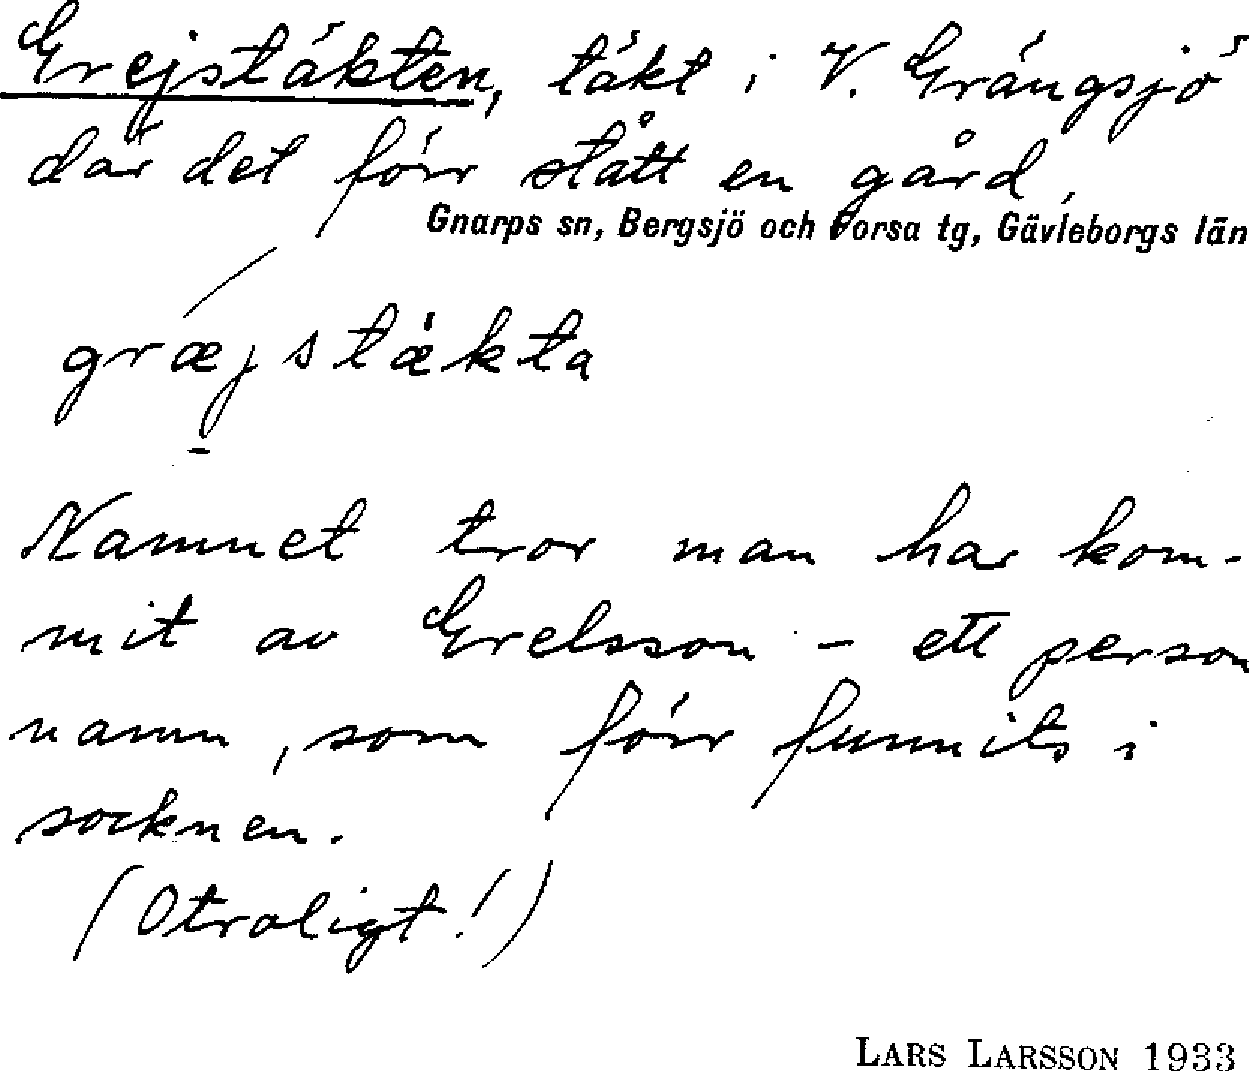 Grejstäkten, täkt i V. Grängsjö
där det förr stått en gård,
Gnarps sn, Bergsjö och Forsa tg, Gävleborgs län
græjstækta
Namnet tror man har kom-
mit av Grelsson – ett person
namn, som förr funnits i
socknen.
(Otroligt!)
LARS LARSSON 1933